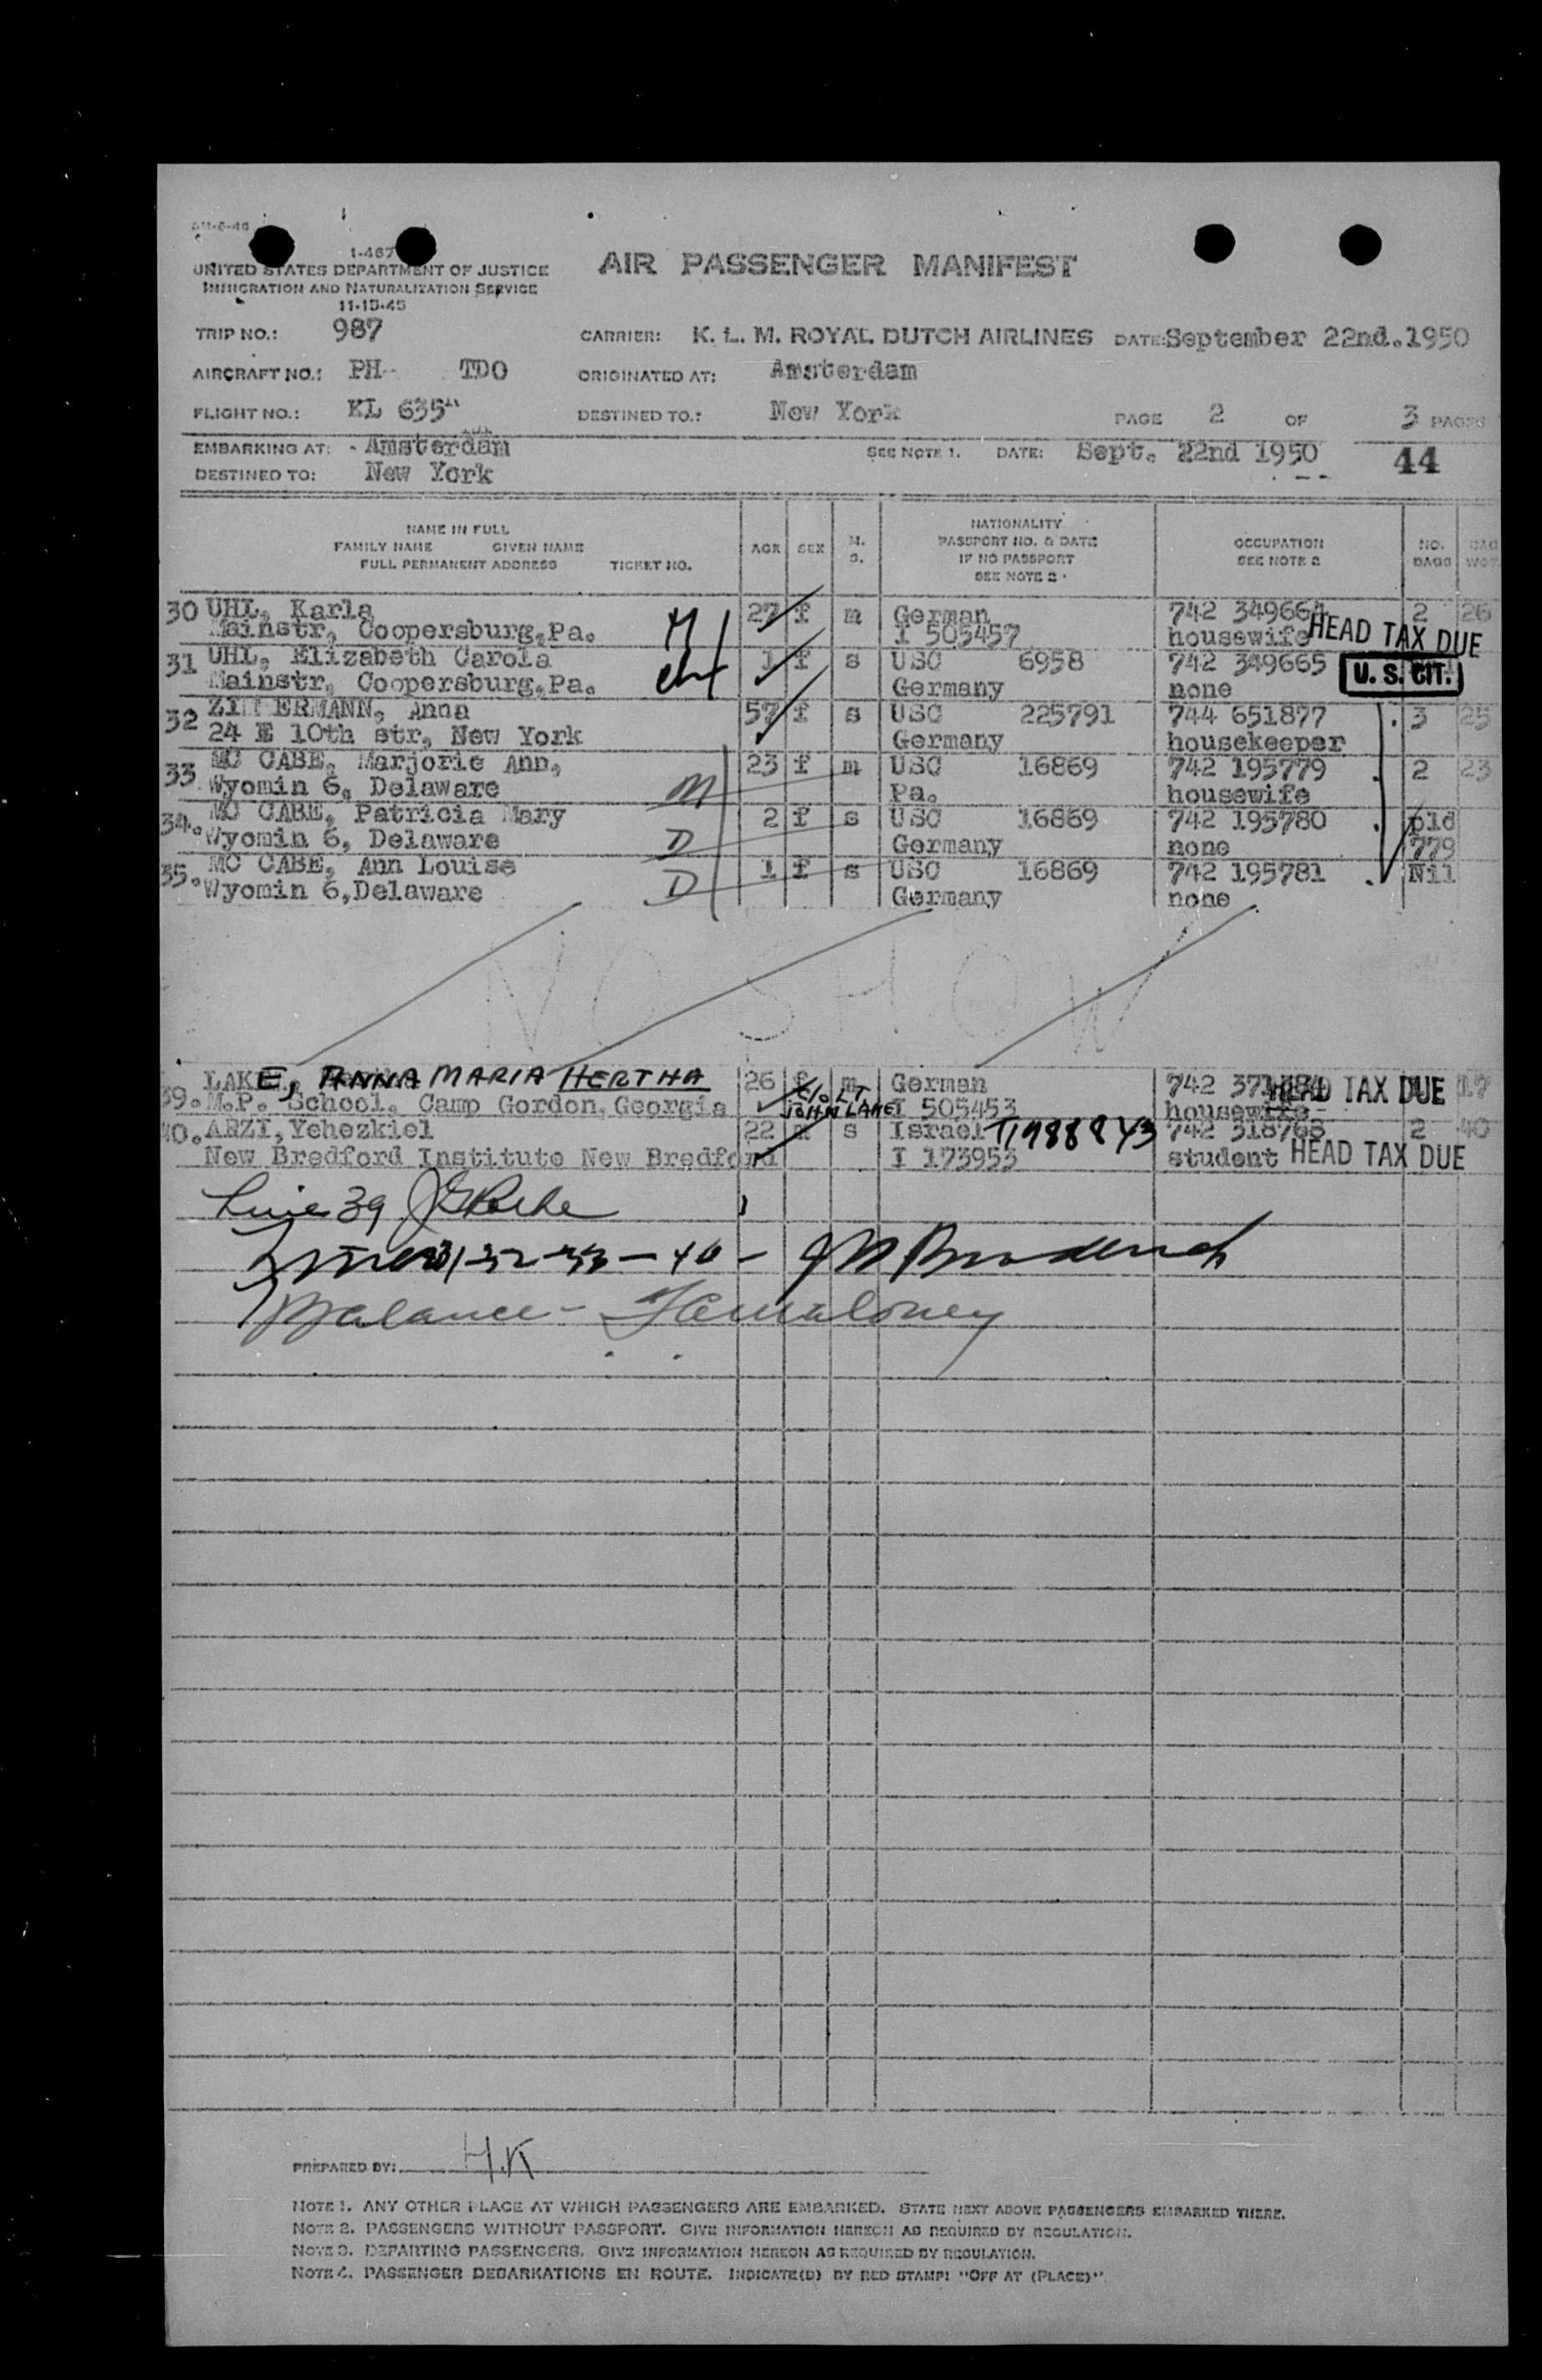 1-467
UNITED STATES DEPARTMENT OF JUSTICE
IMMIGRATION AND NATURALIZATION SERVICE
11-15-45
AIR PASSENGER MANIFEST
TRIP NO.: 987 CARRIER: K. L. M. ROYAL DUTCH AIRLINES DATE: September 22nd.1950
AIRCRAFT NO.: PH- TDO ORIGINATED AT: Amsterdam
FLIGHT NO.: KL 635 DESTINED TO.: New York PAGE 2 OF 3 PAGES
EMBARKING AT: - Amsterdam SEE NOTE 1. DATE: Sept. 22nd 1950 44
DESTINED TO: New York
NAME IN FULL
FAMILY NAME GIVEN NAME
FULL PERMANENT ADDRESS TICKET NO.
AGE SEX M. S.
NATIONALITY
PASSPORT NO. & DATE
IF NO PASSPORT
SEE NOTE 2
OCCUPATION
SEE NOTE 2
NO. BAGS
30 UHL, Karla 27 f m German 742 349664 2 26
Mainstr, Coopersburg,Pa. I 505457 housewife HEAD TAX DUE
31 UHL, Elizabeth Carola 1 f s USC 6958 742 349665 U. S. CIT.
Mainstr, Coopersburg,Pa. Germany none
32 ZIMMERMANN, Anna 57 f s USC 225791 744 651877 3 25
24 E 10th str, New York Germany housekeeper
33. MC CABE, Marjorie Ann, 23 f m USC 16869 742 195779 2 23
Wyomin 6, Delaware M Pa. housewife
34. MC CABE, Patricia Mary 2 f s USC 16869 742 195780 pld
Wyomin 6, Delaware D Germany none 779
35. MC CABE, Ann Louise 1 f s USC 16869 742 195781 Nil
Wyomin 6,Delaware D Germany none
NO SHOW
39. LAKE, ANNA MARIA HERTHA 26 f m German 742 HEAD TAX DUE 17
M.P. School, Camp Gordon,Georgia C/O LT JOHN LAKE I 505453 housewife
40. ARZI,Yehezkiel 22 m s Israel T1988843 742 318768 2 40
New Bredford Institute New Bredford I 173953 student HEAD TAX DUE
Line 39
31-32-33-40-
Balance -
PREPARED BY: H.K
NOTE 1. ANY OTHER PLACE AT WHICH PASSENGERS ARE EMBARKED. STATE NEXT ABOVE PASSENGERS EMBARKED THERE.
NOTE 2. PASSENGERS WITHOUT PASSPORT. GIVE INFORMATION HEREON AS REQUIRED BY REGULATION.
NOTE 3. DEPARTING PASSENGERS. GIVE INFORMATION HEREON AS REQUIRED BY REGULATION.
NOTE 4. PASSENGER DEBARKATIONS EN ROUTE. INDICATE(D) BY RED STAMP: "OFF AT (PLACE)".